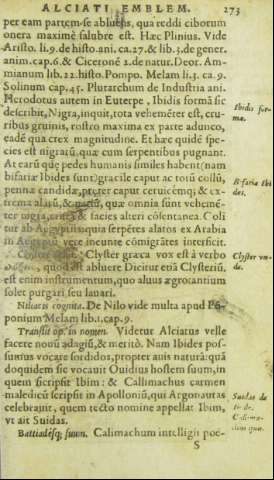 ALCIATI EMBLEM. 273
per eam partem se abluens, qua reddi ciborum
onera maximè salubre est. Hæc Plinius. Vide
Aristo. li.9.de histo.ani. ca.27.& lib.3.de gener.
anim.cap.6.& Ciceronē 2.de natur. Deor. Am-
mianum lib.22.histo. Pompo. Melam li.3. ca. 9.
Solinum cap.45. Plutarchum de Industria ani.
Herodotus autem in Euterpe, Ibidis formā sic
describit, Nigra, inquit, tota vehemēter est, cruri-
bus gruinis, rostro maxima ex parte adunco,
eadē qua crex magnitudine. Et hæc quidē spe-
cies est nigrarū, quæ cum serpentibus pugnant.
At earū quæ pedes humanis similes habent (nam
bifariæ Ibides sunt) gracile caput ac totū collū,
pennæ candidæ, præter caput ceruicemq; & ex-
trema alarū, & quæ omnia sunt vehemē-
ter nigra, crura & facies alteri cōsentanea. Coli
tur ab Aegyptiis quia serpētes alatos ex Arabia
in Aegyptū vere ineunte cōmigrātes interficit.
Clyster græca vox est à verbo
quod est abluere Dicitur etiā Clysteriū,
est enim instrumentum, quo aluus ægrotantium
solet purgari seu lauari.
Niliacis cognita. De Nilo vide multa apud Pō-
ponium Melam lib.1.cap.9.
Transijt op. in nomen. Videtur Alciatus velle
facere nouū adagiū, & meritò. Nam Ibides pos-
sumus vocare sordidos, propter auis naturā: quā
doquidem sic vocauit Ouidius hostem suum, in
quem scripsit Ibim: & Callimachus carmen
maledicū scripsit in Apolloniū, qui Argonautas
celebrauit, quem tecto nomine appellat Ibim,
vt ait Suidas.
Battiadésq; suum. Callimachum intelligit poe-
S
Ibidis for-
ma.
Bifariæ Ibi
des.
Clyster vn-
de.
Suidas de